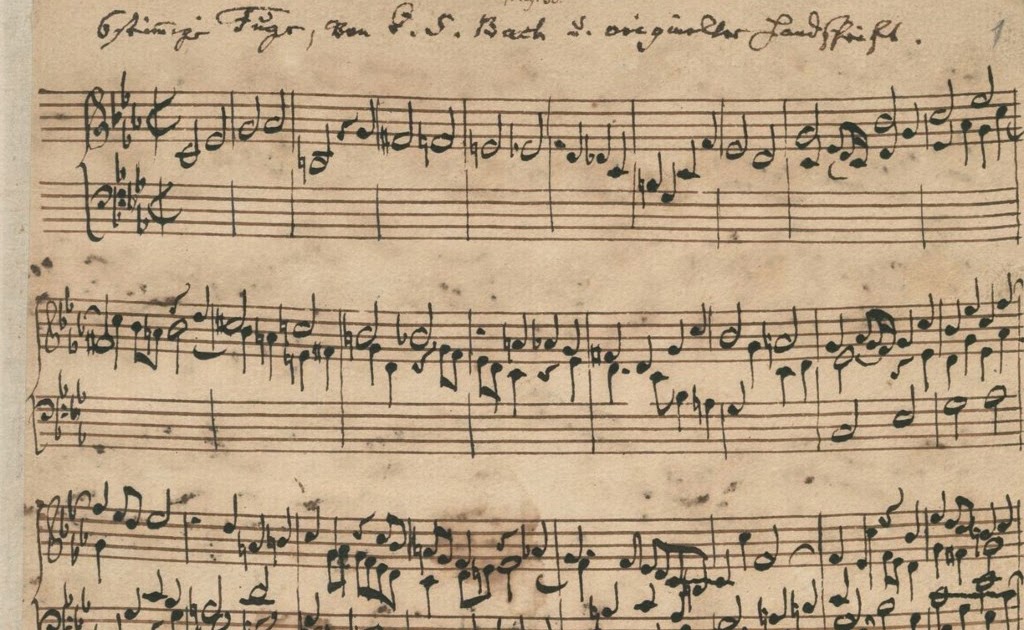 6stimmige Fuge, von J. S. Bach u. origineller Handschrift.
1